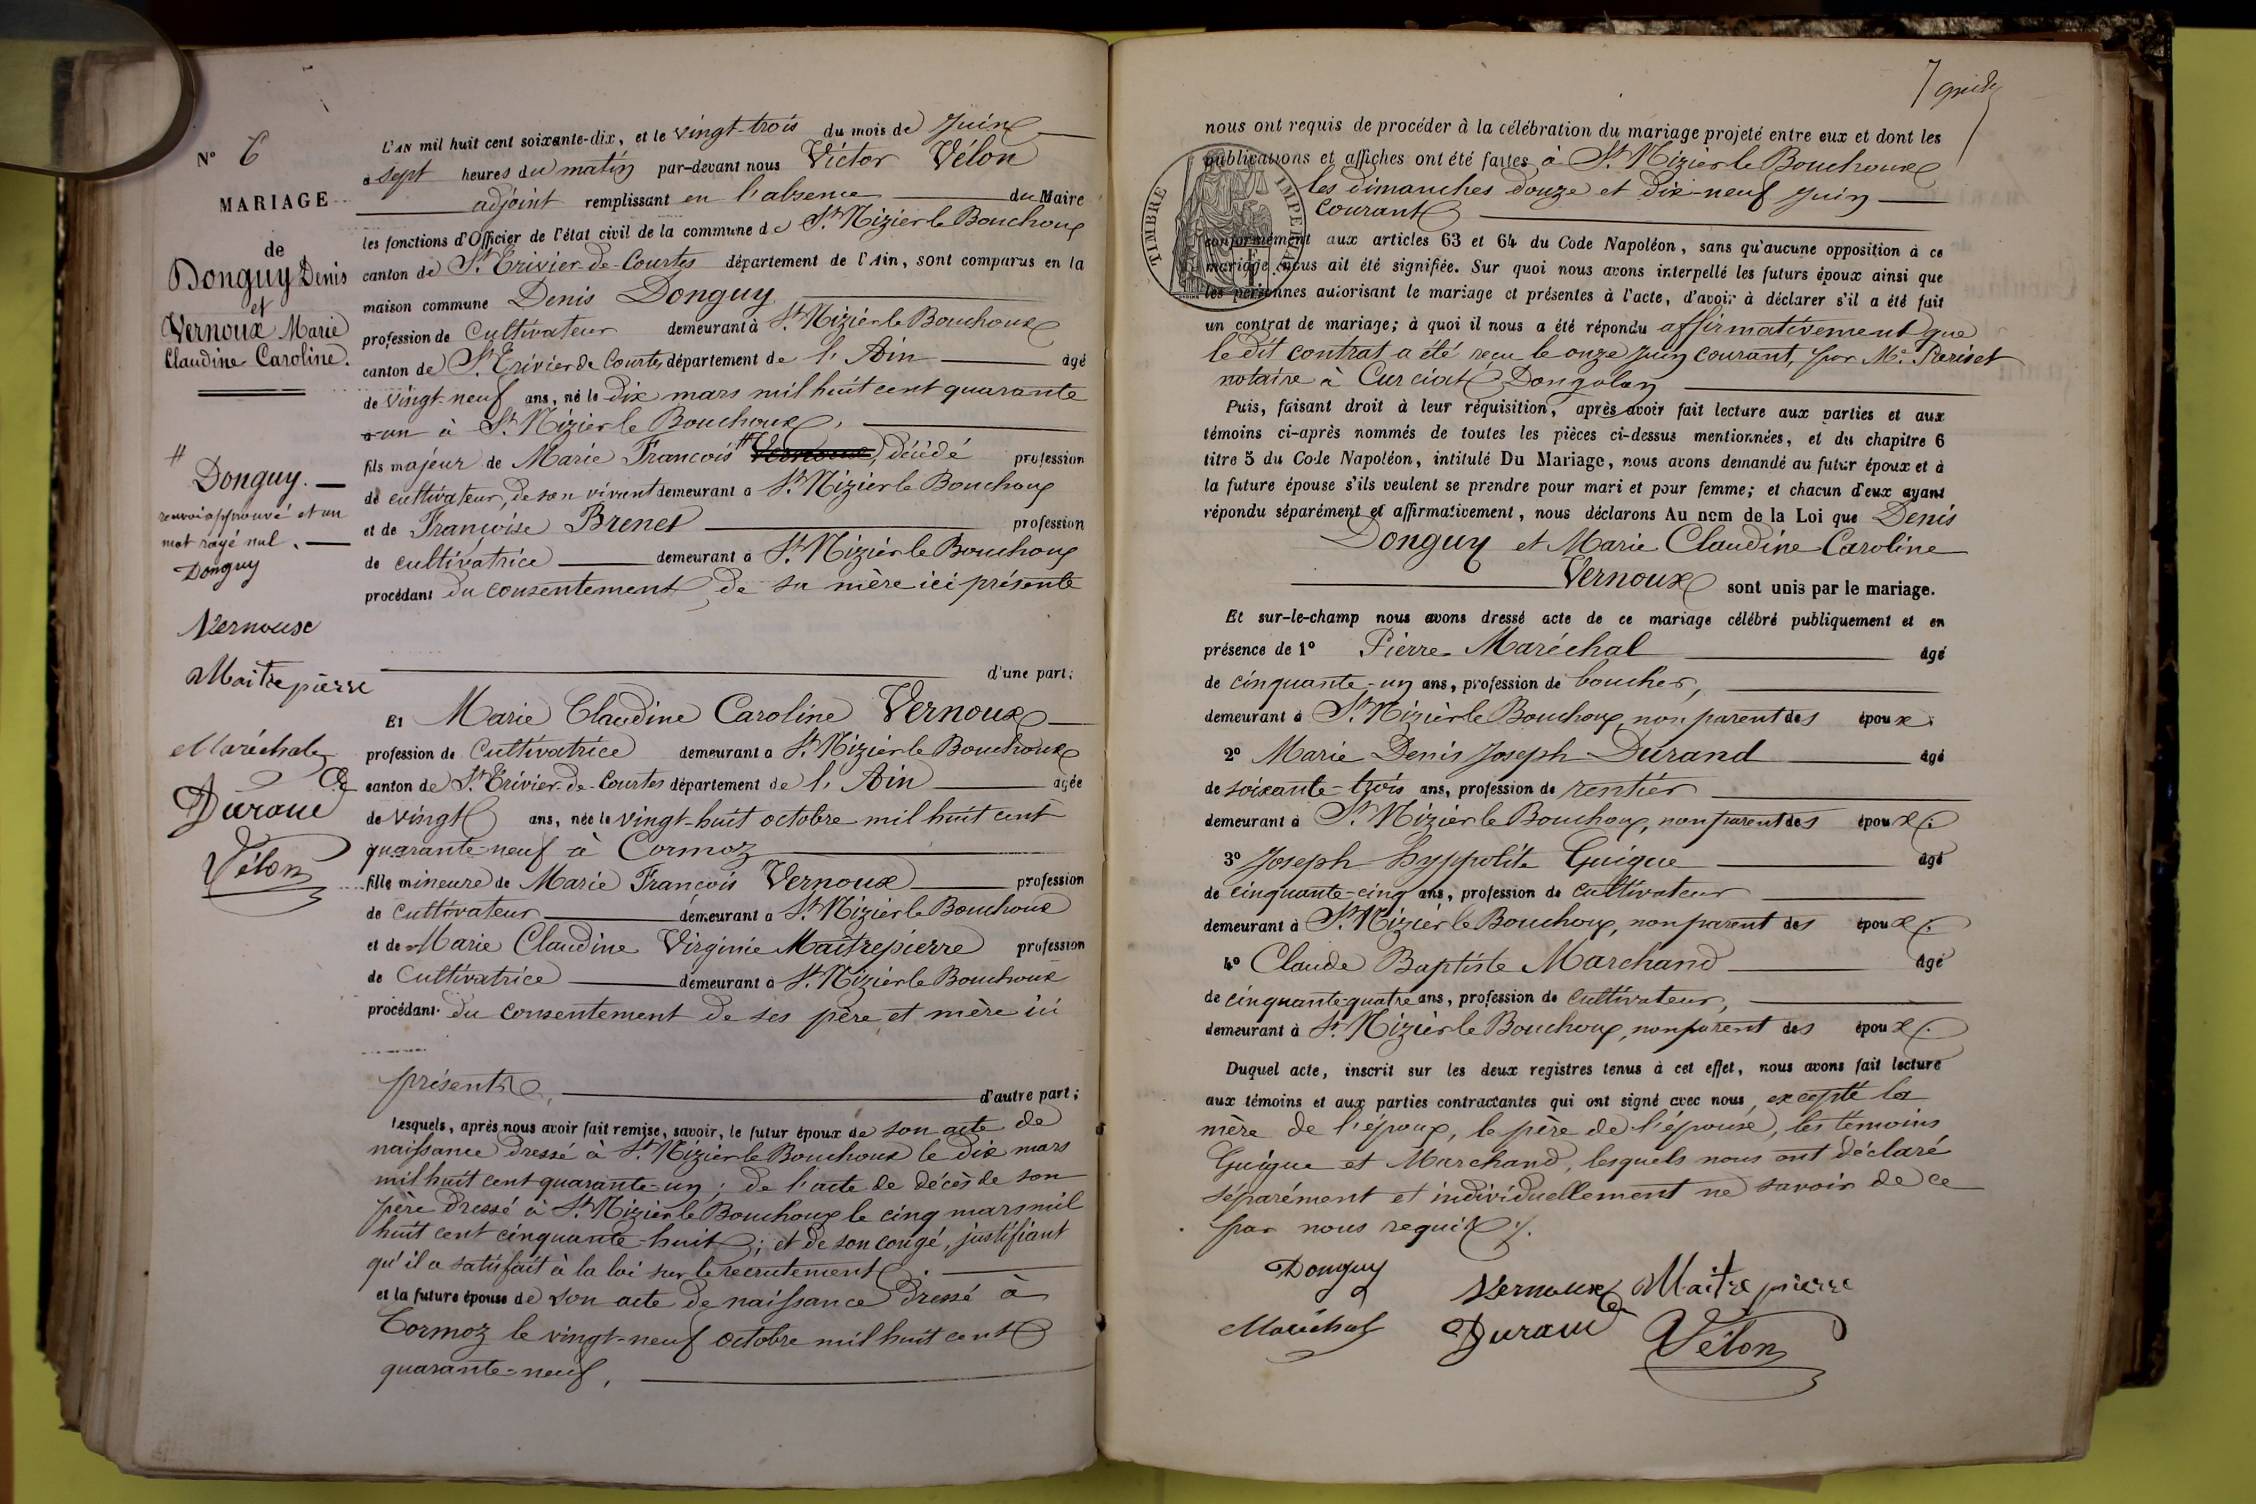 N° 6
MARIAGE
de
Donguy Denis
et
Vernoux Marie
Claudine Caroline.
#
Donguy. —
renvoi approuvé et un
mot rayé nul. —
Donguy
Vernoux
Maitrepierre
Maréchal
Durand
Vélon
L'AN mil huit cent soixante-dix, et le vingt-trois du mois de Juin
à sept heures du matin par-devant nous Victor Vélon
adjoint remplissant en l'absence du Maire
les fonctions d'Officier de l'état civil de la commune de St Nizier le Bouchoux
canton de St Trivier-de-Courtes département de l'Ain, sont comparus en la
maison commune Denis Donguy
profession de Cultivateur demeurant à St Nizier le Bouchoux
canton de St Trivier de Courtes département de l'Ain âgé
de vingt-neuf ans, né le dix mars mil huit cent quarante
un à St Nizier le Bouchoux,
fils majeur de Marie François # Vernoux, décédé profession
de cultivateur, de son vivant demeurant à St Nizier le Bouchoux
et de Françoise Brenet profession
de cultivatrice demeurant à St Nizier le Bouchoux
procédant du consentement de sa mère ici présente
d'une part;
Et Marie Claudine Caroline Vernoux
profession de Cultivatrice demeurant à St Nizier le Bouchoux
canton de St Trivier-de-Courtes département de l'Ain agée
de vingt ans, née le vingt-huit octobre mil huit cent
quarante-neuf à Cormoz
fille mineure de Marie François Vernoux profession
de Cultivateur demeurant à St Nizier le Bouchoux
et de Marie Claudine Virginie Maitrepierre profession
de Cultivatrice demeurant à St Nizier le Bouchoux
procédant du consentement de ses père et mère ici
présents, d'autre part;
Lesquels, après nous avoir fait remise, savoir, le futur époux de son acte de
naissance dressé à St Nizier le Bouchoux le dix mars
mil huit cent quarante-un; de l'acte de décès de son
père dressé à St Nizier le Bouchoux le cinq mars mil
huit cent cinquante-huit; et de son congé, justifiant
qu'il a satisfait à la loi sur le recrutement.
et la future épouse de son acte de naissance dressé à
Cormoz le vingt-neuf octobre mil huit cent
quarante-neuf,
7
nous ont requis de procéder à la célébration du mariage projeté entre eux et dont les
publications et affiches ont été faites à St Nizier le Bouchoux
les dimanches douze et dix-neuf Juin
courant
TIMBRE IMPERIAL
conformément aux articles 63 et 64 du Code Napoléon, sans qu'aucune opposition à ce
mariage nous ait été signifiée. Sur quoi nous avons interpellé les futurs époux ainsi que
les personnes autorisant le mariage et présentes à l'acte, d'avoir à déclarer s'il a été fait
un contrat de mariage; à quoi il nous a été répondu affirmativement que
le dit contrat a été reçu le onze Juin courant, par Me Periset
notaire à Curciat Dongalon
Puis, faisant droit à leur réquisition, après avoir fait lecture aux parties et aux
témoins ci-après nommés de toutes les pièces ci-dessus mentionnées, et du chapitre 6
titre 5 du Code Napoléon, intitulé Du Mariage, nous avons demandé au futur époux et à
la future épouse s'ils veulent se prendre pour mari et pour femme; et chacun d'eux ayant
répondu séparément et affirmativement, nous déclarons Au nom de la Loi que Denis
Donguy et Marie Claudine Caroline
Vernoux sont unis par le mariage.
Et sur-le-champ nous avons dressé acte de ce mariage célébré publiquement et en
présence de 1° Pierre Maréchal âgé
de cinquante-un ans, profession de boucher,
demeurant à St Nizier le Bouchoux, non parent des époux.
2° Marie Denis Joseph Durand âgé
de soixante-trois ans, profession de rentier
demeurant à St Nizier le Bouchoux, non parent des époux.
3° Joseph Hyppolite Guigue âgé
de cinquante-cinq ans, profession de cultivateur
demeurant à St Nizier le Bouchoux, non parent des époux.
4° Claude Baptiste Marchand âgé
de cinquante-quatre ans, profession de cultivateur,
demeurant à St Nizier le Bouchoux, non parent des époux.
Duquel acte, inscrit sur les deux registres tenus à cet effet, nous avons fait lecture
aux témoins et aux parties contractantes qui ont signé avec nous, excepté la
mère de l'époux, le père de l'épouse, les témoins
Guigue et Marchand, lesquels nous ont déclaré
séparément et individuellement ne savoir de ce
par nous requis.
Donguy Vernoux Maitrepierre
Maréchal Durand Vélon